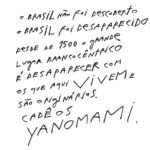 O BRASIL NÃO FOI DESCOBERTO
O BRASIL FOI DESAPARECIDO
DESDE DE 1500 O GRANDE
LUGAR BRANCOCÊNTRICO
É DESAPARECER COM
OS QUE AQUI VIVEM E
SÃO ORIGINÁRIOS.
CADÊ OS
YANOMAMI.